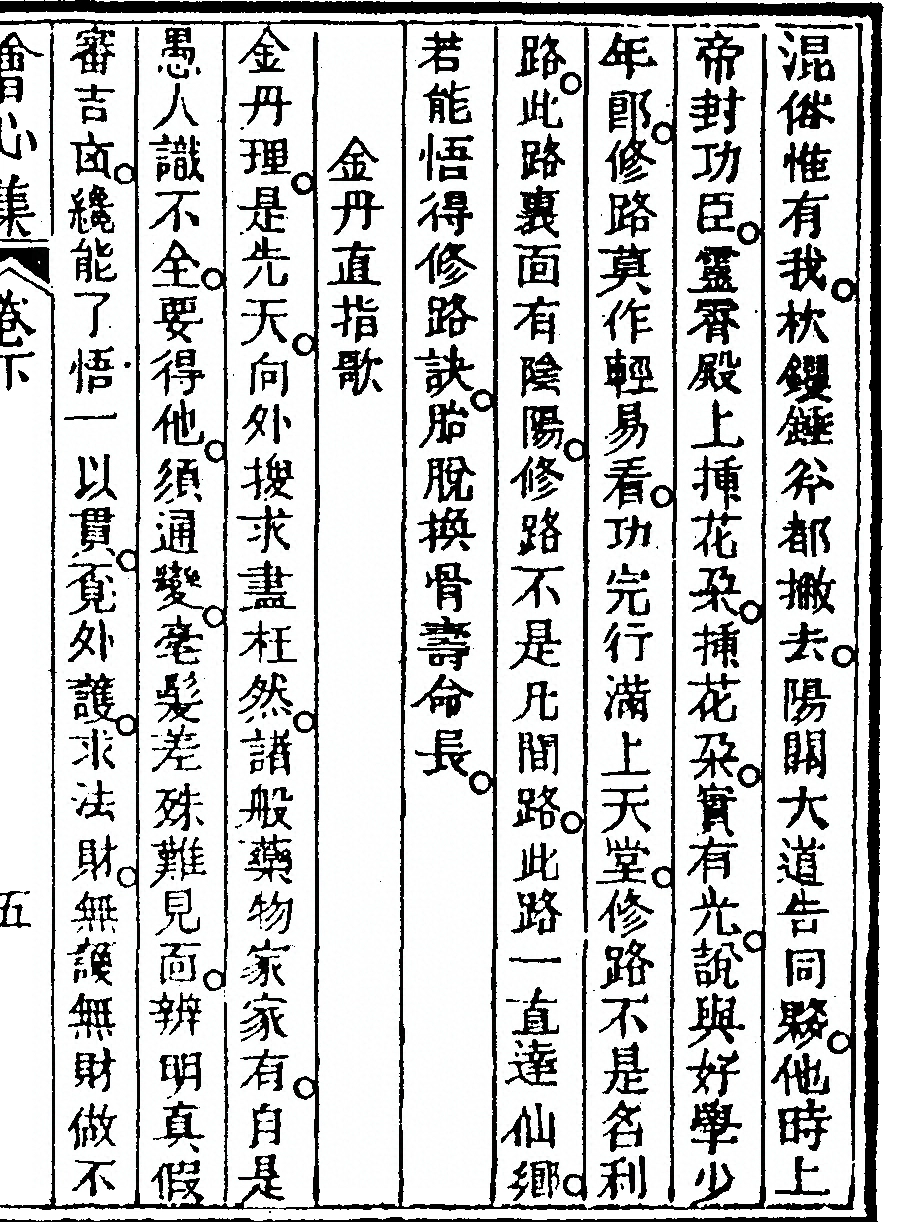 混俗惟有我枕钁錘斧都撇去陽關大道告同夥他時上
帝封功臣靈霄殿上揷花朶揷花朶實有光說與好學少
年郎修路莫作輕易看功完行滿上天堂修路不是名利
路此路裏面有陰陽修路不是凡間路此路一直達仙鄉
若能悟得修路訣胎脫換骨壽命長
金丹直指歌
金丹理是先天向外搜求盡枉然諸般藥物家家有自是
愚人識不全要得他須通變毫髮差殊難見面辨明真假
審吉凶纔能了悟一以貫覓外護求法財無護無財做不
會心集 卷下 五